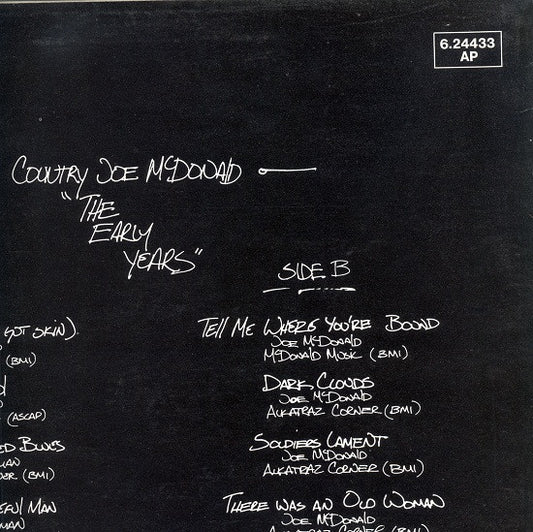 6.24433
AP
COUNTRY JOE McDONALD
"THE
EARLY
YEARS"
SIDE B
GOT SKIN).
(BMI)
(ASCAP)
ED BLUES
(BMI)
MAN
TELL ME WHERE YOU'RE BOUND
JOE McDONALD
McDONALD MUSIC (BMI)
DARK CLOUDS
JOE McDONALD
ALKATRAZ CORNER (BMI)
SOLDIERS LAMENT
JOE McDONALD
ALKATRAZ CORNER (BMI)
THERE WAS AN OLD WOMAN
JOE McDONALD
ALKATRAZ CORNER (BMI)